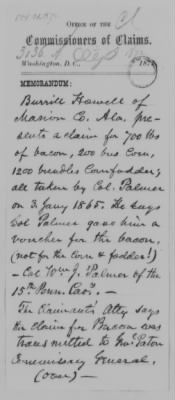 OFFICE OF THE
Commissioners of Claims.
Washington, D.C., 187
MEMORANDUM:
Burrill Howell of
Marion C. Ala. pre-
sents a claim for 700 lbs
of bacon, 200 bus Corn,
1200 bundles Corn fodder;
all taken by Col. Palmer
on 3 Jany 1865. He says
Col Palmer gave him a
voucher for the bacon,
(not for the corn & fodder!)
- Col Wm J. Palmer of the
15th Penn. Cav. -
The Claimants' Atty says
the claim for Bacon was
transmitted to Gnl Eaton
Commissary General,
(over) -